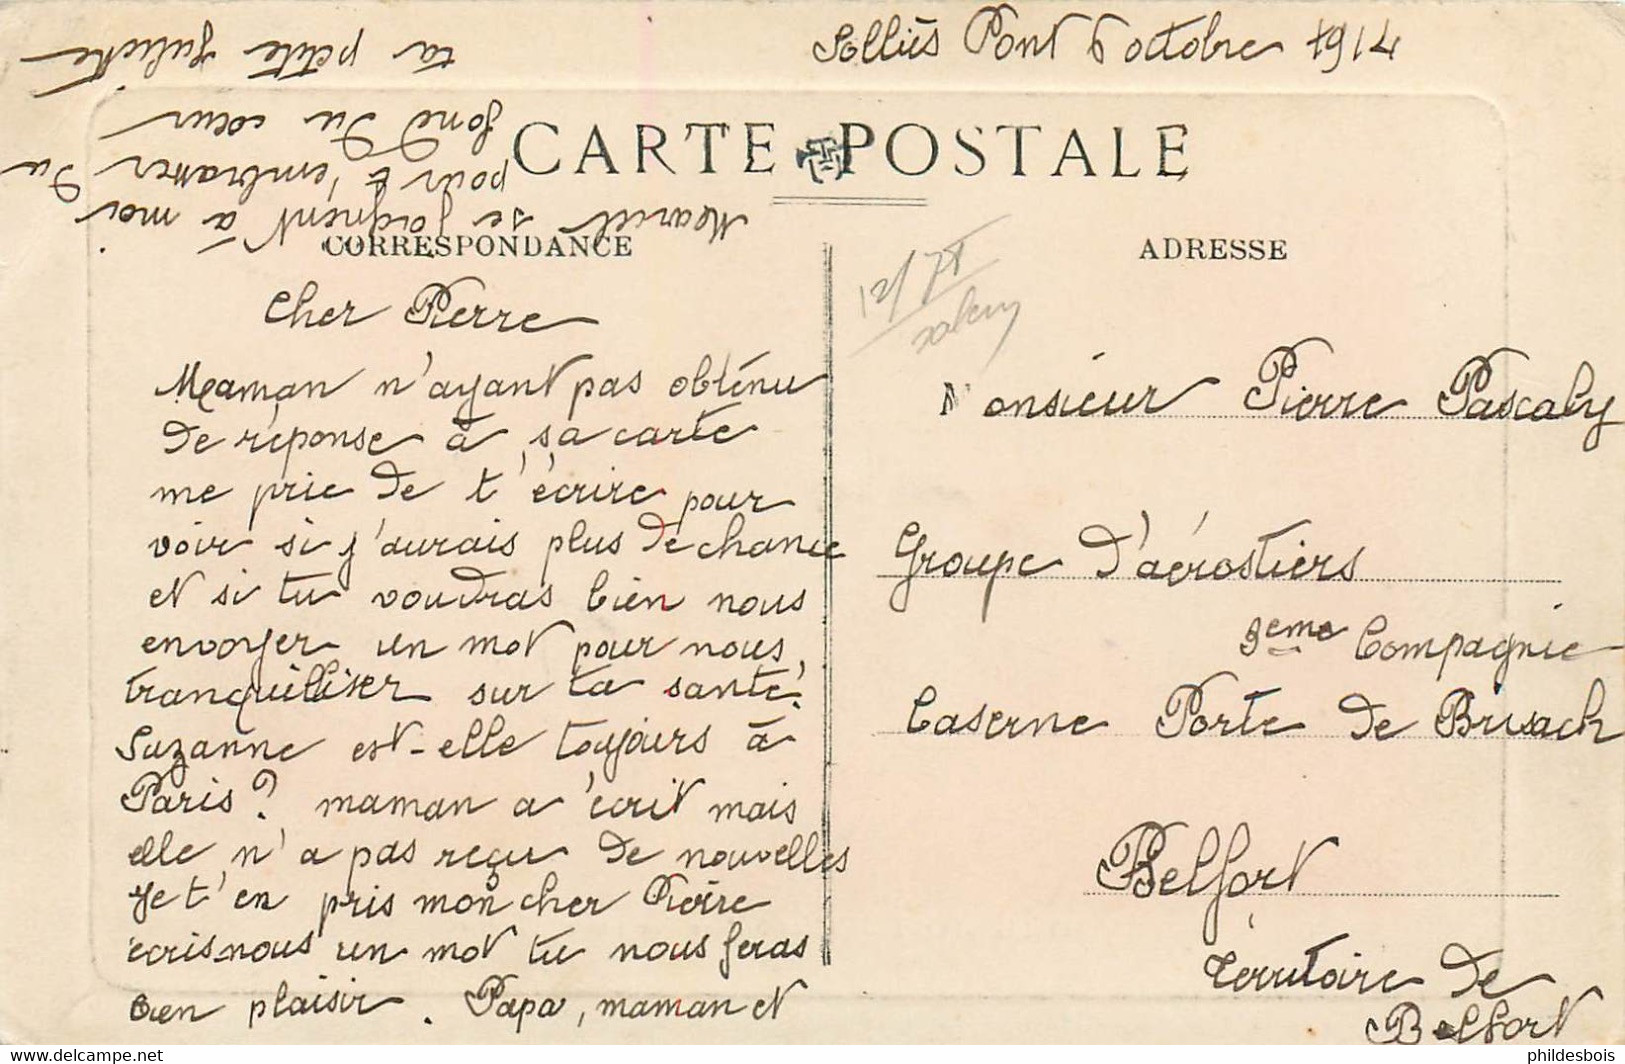 Solliès Pont 6 octobre 1914
CARTE POSTALE
CORRESPONDANCE
ADRESSE
Cher Pierre
Maman n'ayant pas obtenu
de réponse à sa carte
me prie de t'écrire pour
voir si j'aurais plus de chance
et si tu voudras bien nous
envoyer un mot pour nous
tranquilliser sur ta santé.
Suzanne est-elle toujours à
Paris? maman a écrit mais
elle n'a pas reçu de nouvelles
Je t'en pris mon cher Pierre
écris-nous un mot tu nous feras
bien plaisir. Papa, maman et
Marcel se joignent à moi
pour t'embrasser du
fond du cœur
ta petite Juliette
12/78
Monsieur Pierre Pascaly
Groupe d'aérostiers
3eme Compagnie
Caserne Porte de Brisach
Belfort
Territoire de
Belfort
phildesbois